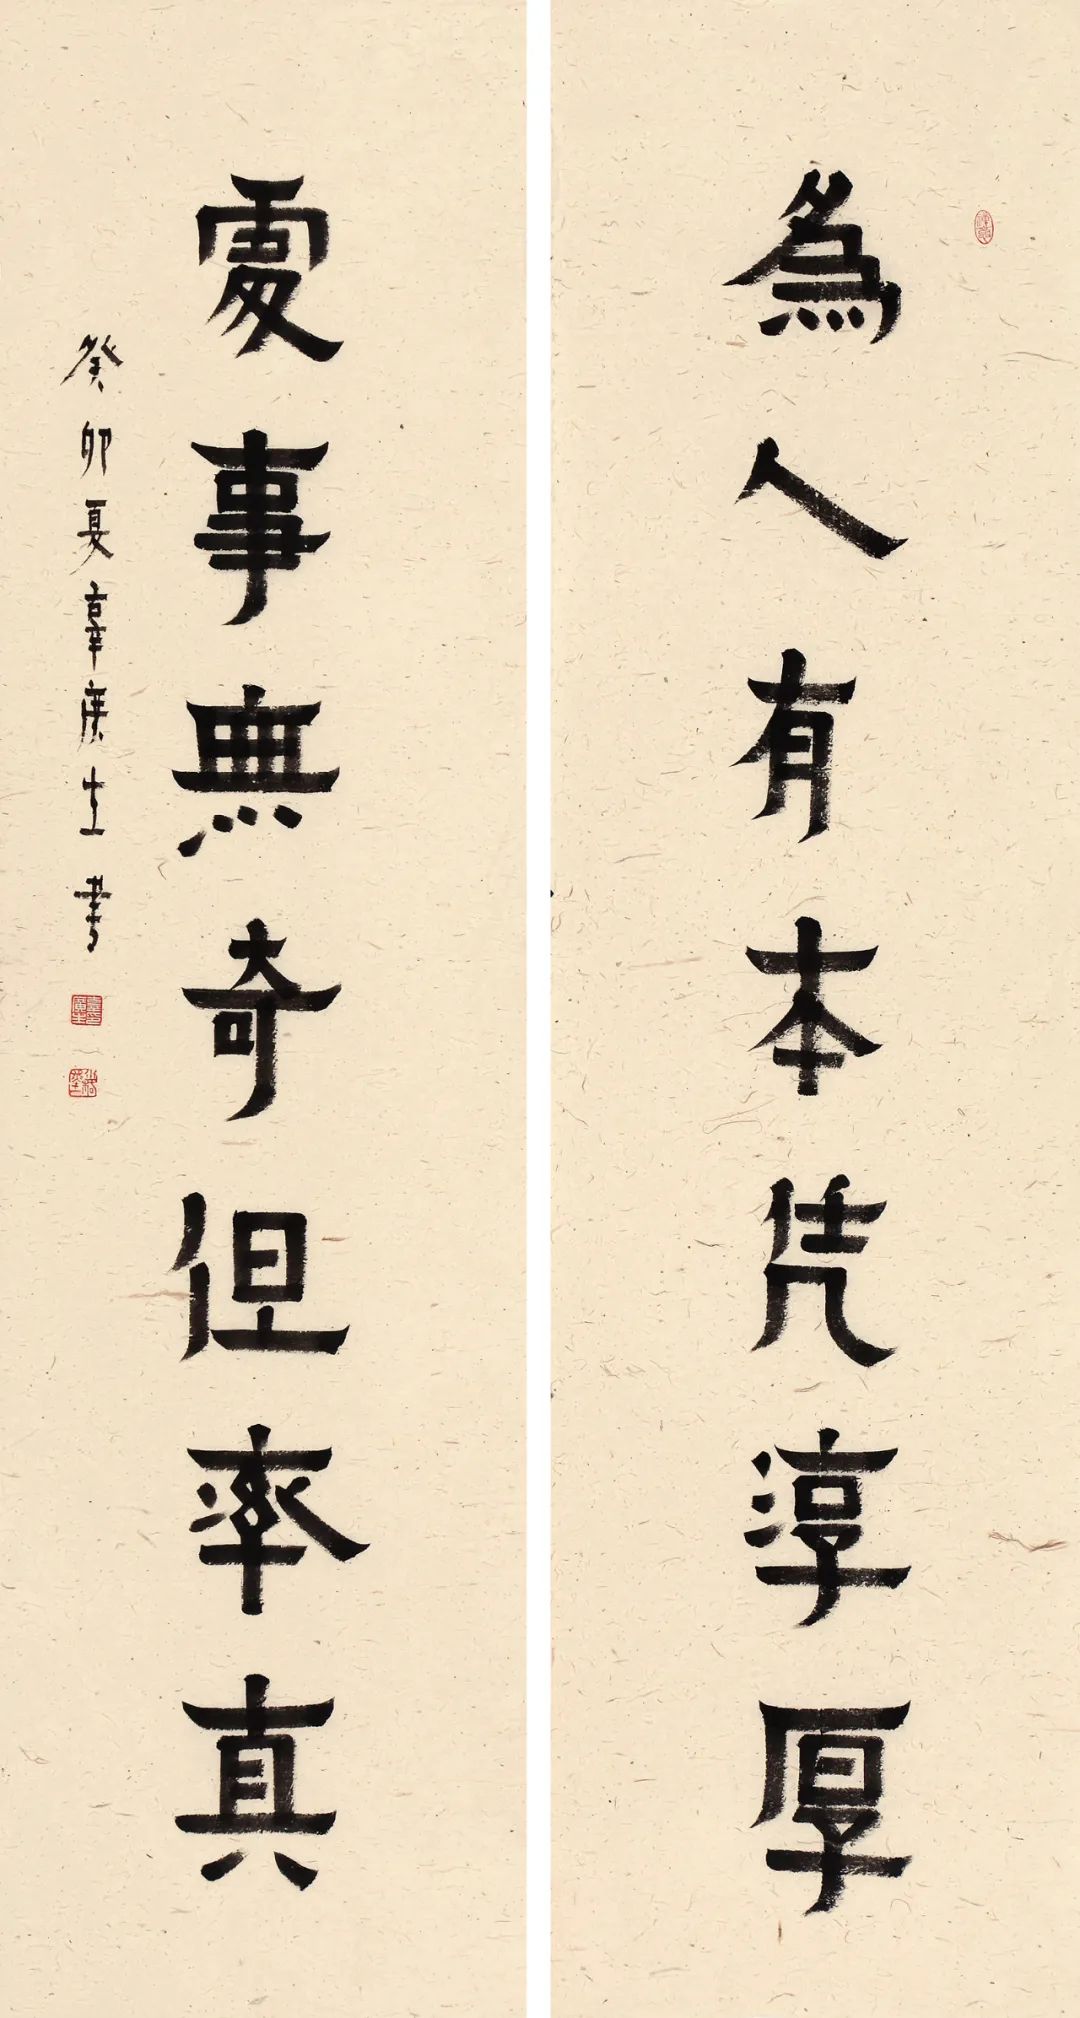 為人有本凭淳厚
處事無奇但率真
癸卯夏辜生書